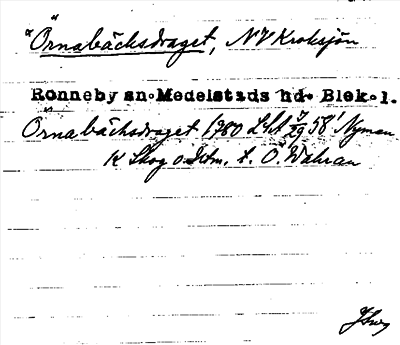 "Örnabäcksdraget", NV Kroksjön
Ronneby sn. Medelstads hd. Blek. l.
Örnabäcksdraget 1980 58' Nyman
K Skog o. Ö. Wahran